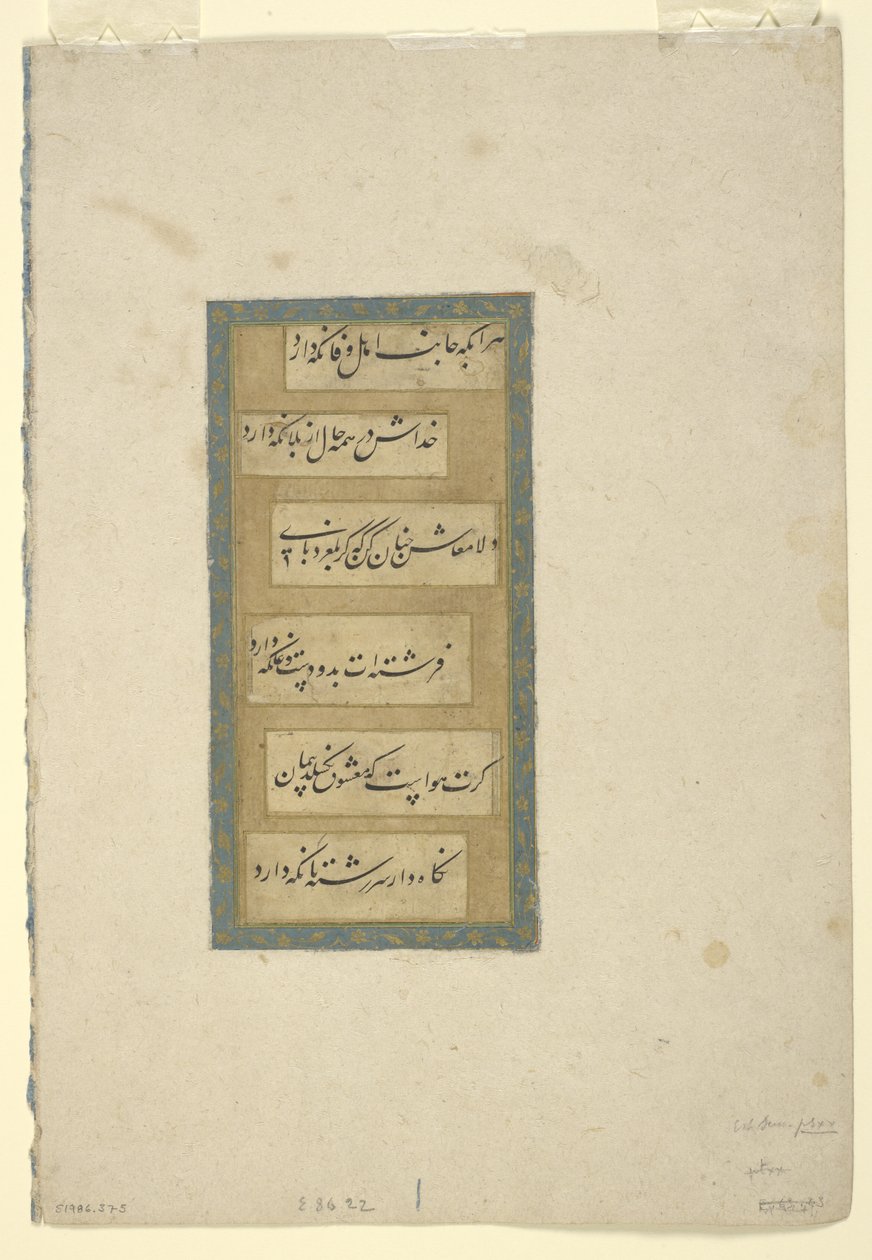 هر انکه جانب اهل وفا نکه دارد
خداش در همه حال از بلا نکه دارد
دلا معاش چنان کن که کر بلغزد پای
فرشته ات بدو دست دعا نکه دارد
کرت هواست که معشوق نکسلد پیمان
نکاه دار سر رشته تا نکه دارد
E1986.375
E 86 22